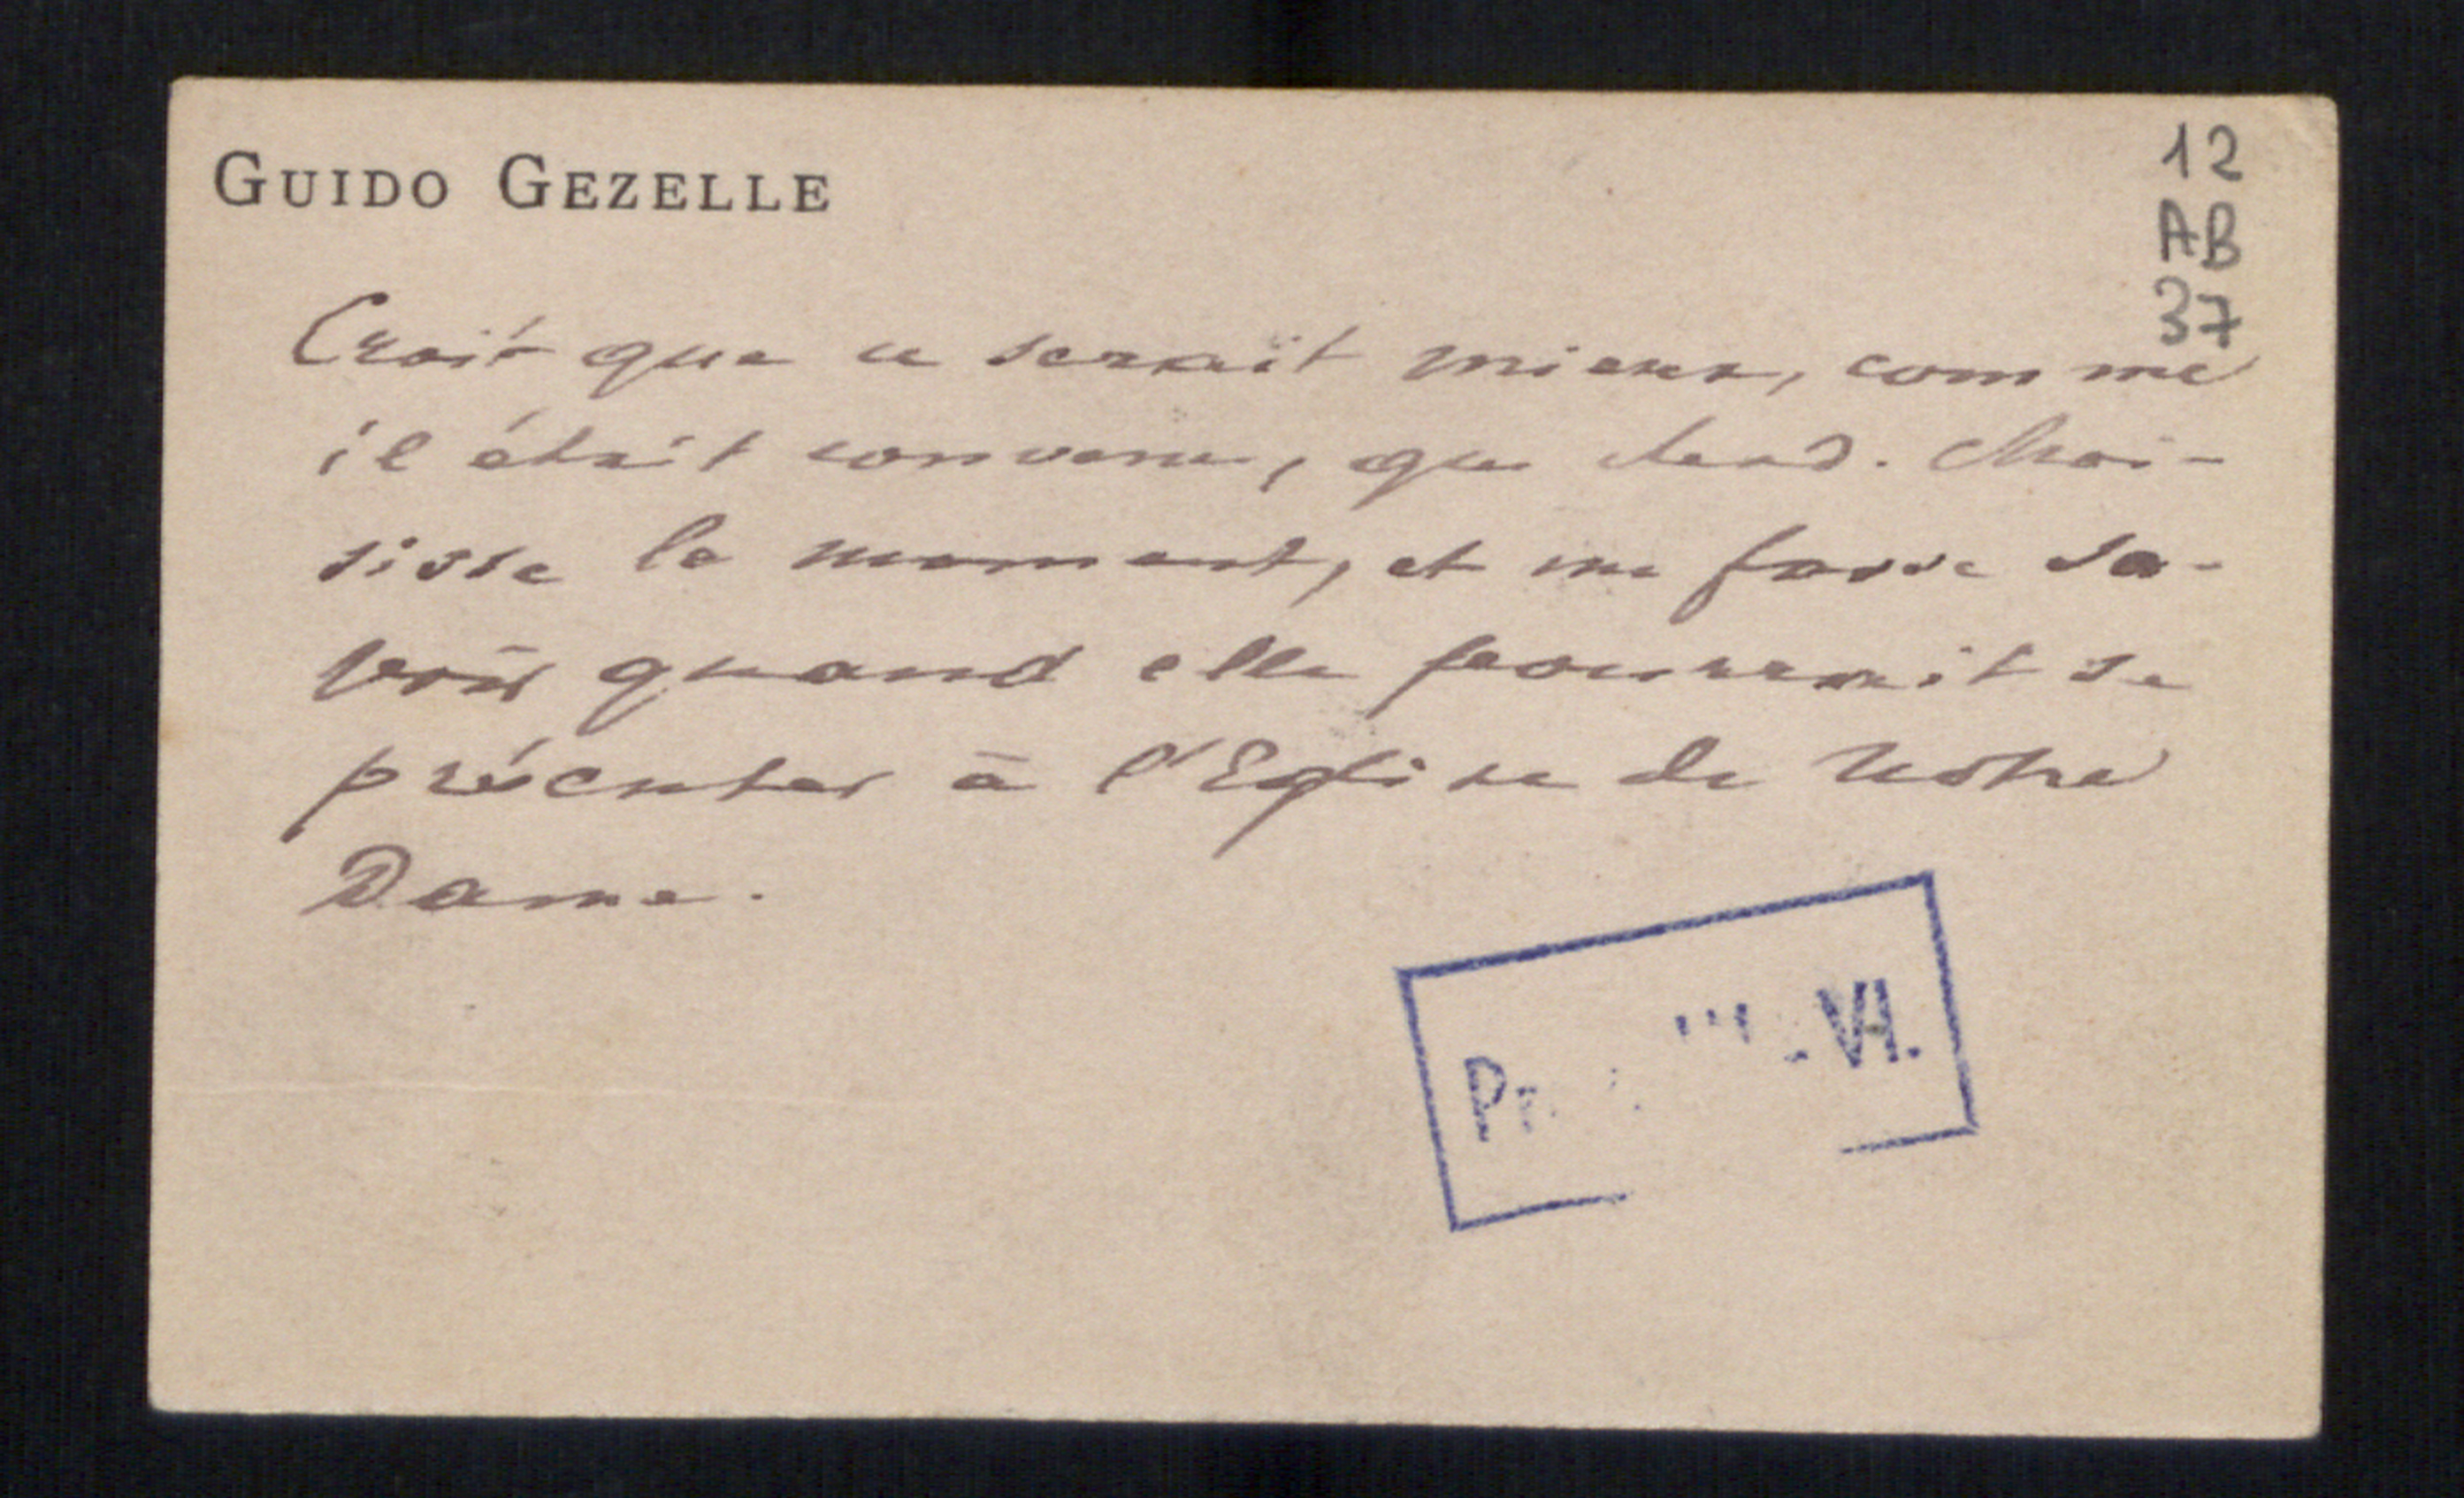 GUIDO GEZELLE
12
AB
37
Croit que ce serait mieux, comme
il était convenu, que choi-
sisse le moment, et me fasse sa-
voir quand elle pourrait se
présenter à l'Eglise de Notre
Dame.
VI.